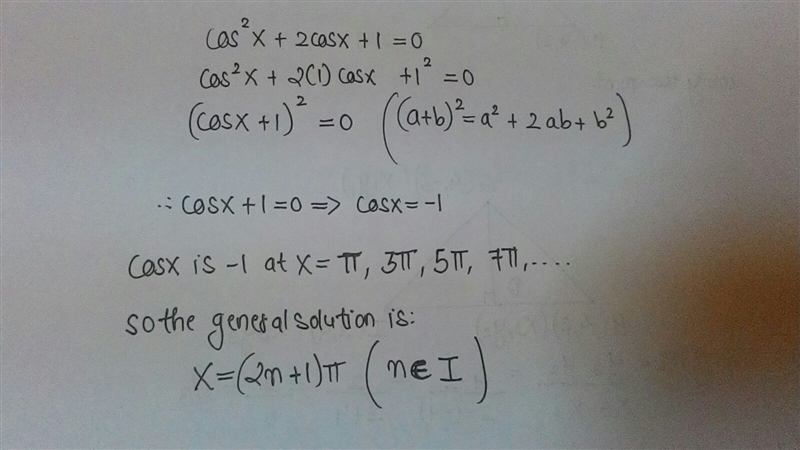 cos²x + 2cosx + 1 = 0
cos²x + 2(1) cosx + 1² = 0
(cosx + 1)² = 0 ((a+b)² = a² + 2ab + b²)
∴ cosx + 1 = 0 ⇒ cosx = -1
cosx is -1 at x = π, 3π, 5π, 7π, ....
so the general solution is:
x = (2n+1)π (n∈I)